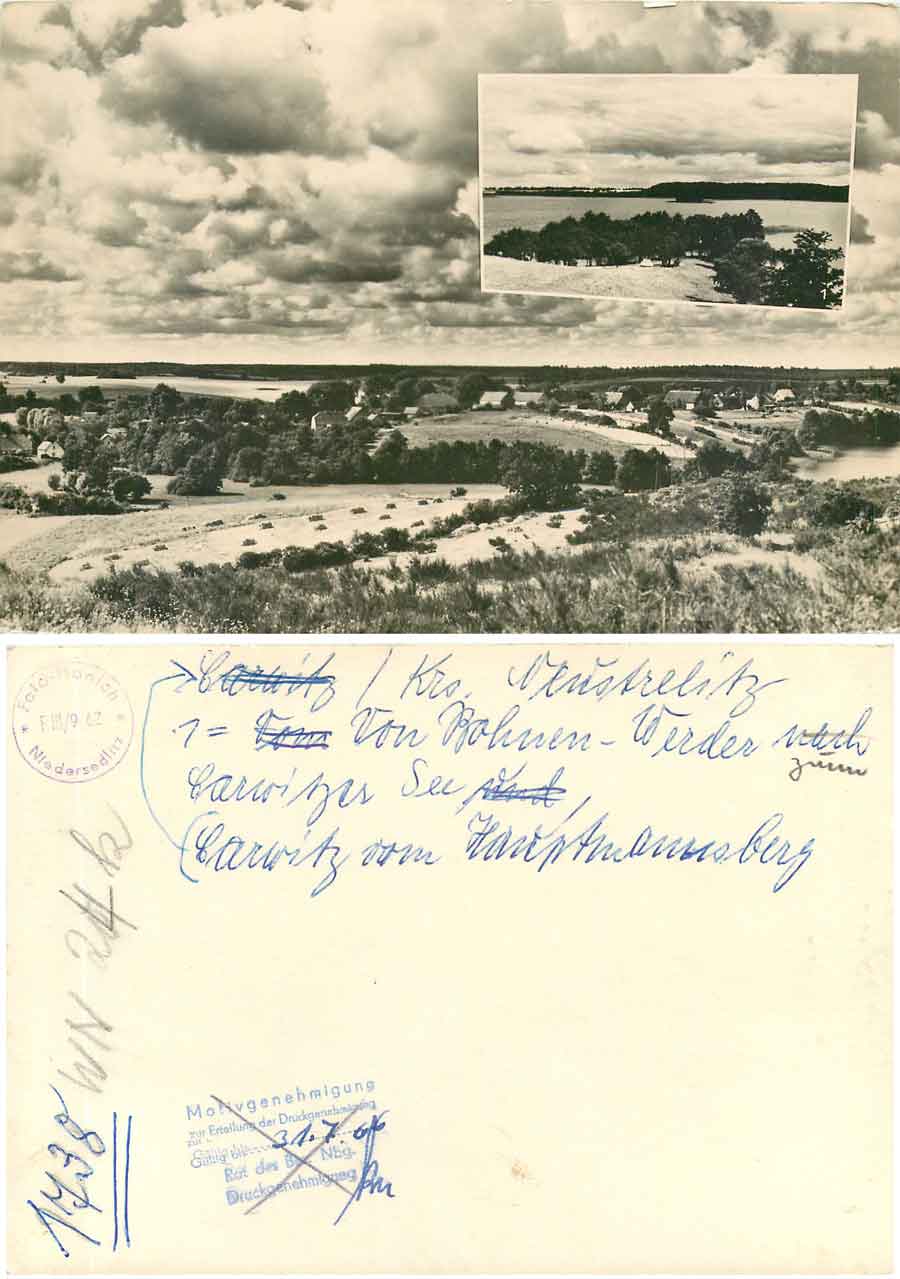 1
Foto-Hanich
F III/9 62
* Niedersedlitz *
Carwitz / Krs. Neustrelitz
1 = Vom Von Bohnen-Werder nach
zum
Carwitzer See und
(Carwitz vom Hauptmannsberg
WN 24 h
1738
Motivgenehmigung
zur Erteilung der Druckgenehmigung
Gültig bis 31.7.66
Rat des Bez. Nbg.
Druckgenehmigung